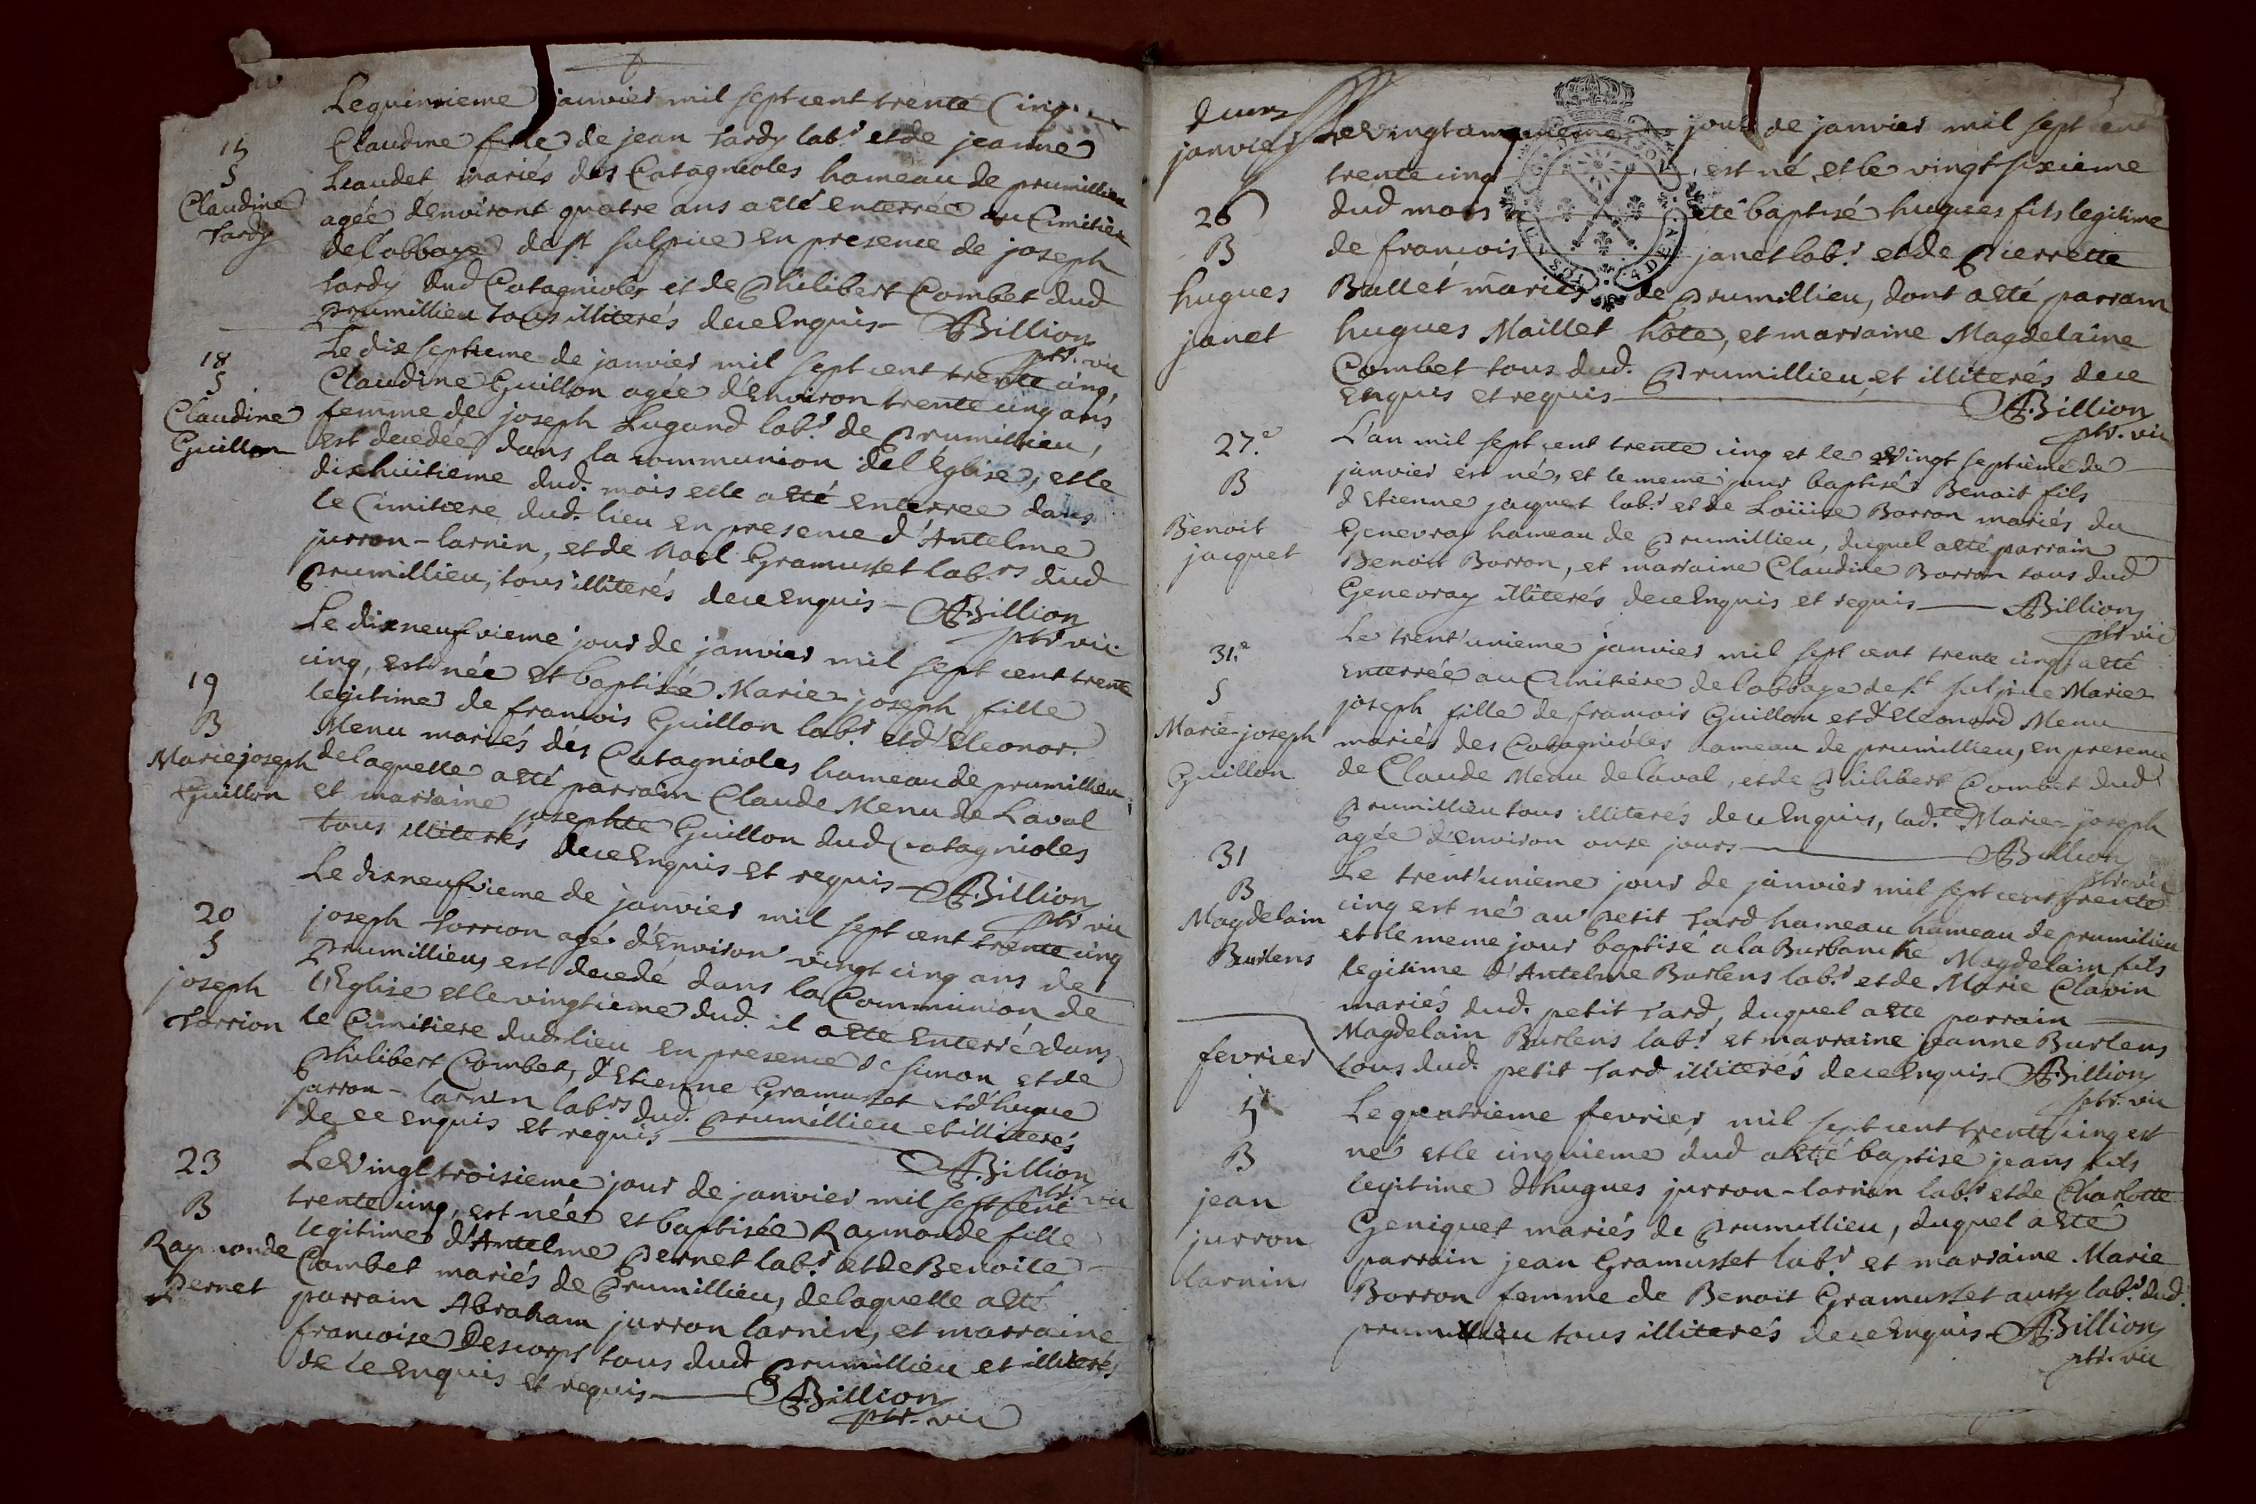 15
S
Claudine
Tardy
Le quinzieme janvier mil sept cent trente cinq
Claudine fille de jean tardy lab.r et de jeanne
Leaudet mariés des Catagnioles hameau de prumillieu
agée denviront quatre ans a eté enterrée au Cimitier
de l'abbaye de st sulpice En presence de joseph
tardy dud Catagnioles et de Philibert Combet dud
Prumillieu tous illiterés de ce Enquis ABillion
ptr. vic
18
S
Claudine
Guillon
Le dix septieme de janvier mil sept cent trente cinq,
Claudine Guillon agée d'Environ trente cinq ans
femme de joseph Lugand lab.r de Prumillieu,
Est decedée dans la communion de l'Eglise, et le
dixhuitieme dud. mois elle a eté enterree dans
le Cimitiere dud. lieu en presence d'Antelme
jurron-larnin, et de Noel Gramusset lab.rs dud
Prumillieu, tous illiterés de ce Enquis ABillion
ptr vic.
19
B
Marie joseph
Guillon
Le dixneufvieme jour de janvier mil sept cent trente
cinq, est née et baptisée Marie-joseph fille
legitime de francois Guillon lab.r et d'Eleonor.
Menu mariés des Catagnioles hameau de prumillieu,
de laquelle a eté parrain Claude Menu de Laval
et marraine josephte Guillon dud Catagnioles
tous illiterés de ce Enquis et requis ABillion
ptr vic
20
S
joseph
torrion
Le dixneufvieme de janvier mil sept cent trente cinq
joseph torrion agé d'Environ vingt cinq ans de
Prumillieu, est decede dans la Communion de
l'Eglise et le vingtieme dud. il a eté Enterré dans
le Cimitiere dud. lieu en presence de simon et de
Philibert Combet, d'Etienne Gramusset et d'hugue
jurron-larnin lab.rs dud. Prumillieu et illiterés
de ce enquis et requis ABillion
ptr. vic
23
B
Raymonde
Pernet
Le Vingt troisieme jour de janvier mil sept cent
trente cinq, est née et baptisée Raymonde fille
legitime d'Antelme Pernet lab.r et de Benoite
Combet mariés de Prumillieu, de laquelle a eté
parrain Abraham jurron larnin, et marraine
francoise Descorps tous dud Prumillieu et illiterés
de ce Enquis et requis ABillion
ptr. vic
janvier
26
B
hugues
janet
Le Vingt cinquieme jour de janvier mil sept cent
trente cinq est né, et le vingt sixieme
dud mois a eté baptisé hugues fils legitime
de francois janet lab.r et de Pierrette
Ballet mariés de Prumillieu, dont a eté parrain
hugues Maillet hôte, et marraine Magdelaine
Combet tous dud. Prumillieu, et illiterés de ce
Enquis et requis ABillion
ptr. vic
27.e
B
Benoit
jacquet
L'an mil sept cent trente cinq et le Vingt septieme de
janvier est né, et le meme jour baptisé Benoit fils
d'Etienne jacquet lab.r et de Loüise Borron mariés du
Genevray hameau de Prumillieu, duquel a eté parrain
Benoit Borron, et marraine Claudine Borron tous dud
Genevray illiterés de ce Enquis et requis ABillion
ptr vic
31.e
S
Marie-joseph
Guillon
Le trent'unieme janvier mil sept cent trente cinq a eté
Enterrée au Cimitiere de l'abbaye de st sulpice Marie-
joseph fille de francois Guillon et d'Eleonord Menu
mariés des Catagnioles hameau de prumillieu, en presence
de Claude Menu de laval, et de Philibert Combet dud
Prumillieu tous illiterés de ce Enquis, lad.te Marie-joseph
agée d'Environ onze jours ABillion
ptr. vic
31
B
Magdelain
Burlens
Le trent'unieme jour de janvier mil sept cent trente
cinq est né au petit tard hameau hameau de prumilieu
et le meme jour baptisé a la Burbanche Magdelain fils
legitime d'Antelme Burlens lab.r et de Marie Clavin
mariés dud. petit tard, duquel a eté parrain
Magdelain Burlens lab.r et marraine jeanne Burlens
tous dud. petit tard illiterés de ce Enquis ABillion
ptr. vic
fevrier
5
B
jean
jurron
larnin
Le quatrieme fevrier mil sept cent trente cinq est
né et le cinquieme dud a eté baptisé jean fils
legitime d'hugues jurron-larnin lab.r et de Charlotte
Geniquet mariés de Prumillieu, duquel a eté
parrain jean Gramusset lab.r et marraine Marie
Borron femme de Benoit Gramusset aussy lab.r dud.
prumillieu tous illiterés de ce Enquis ABillion
ptr. vic